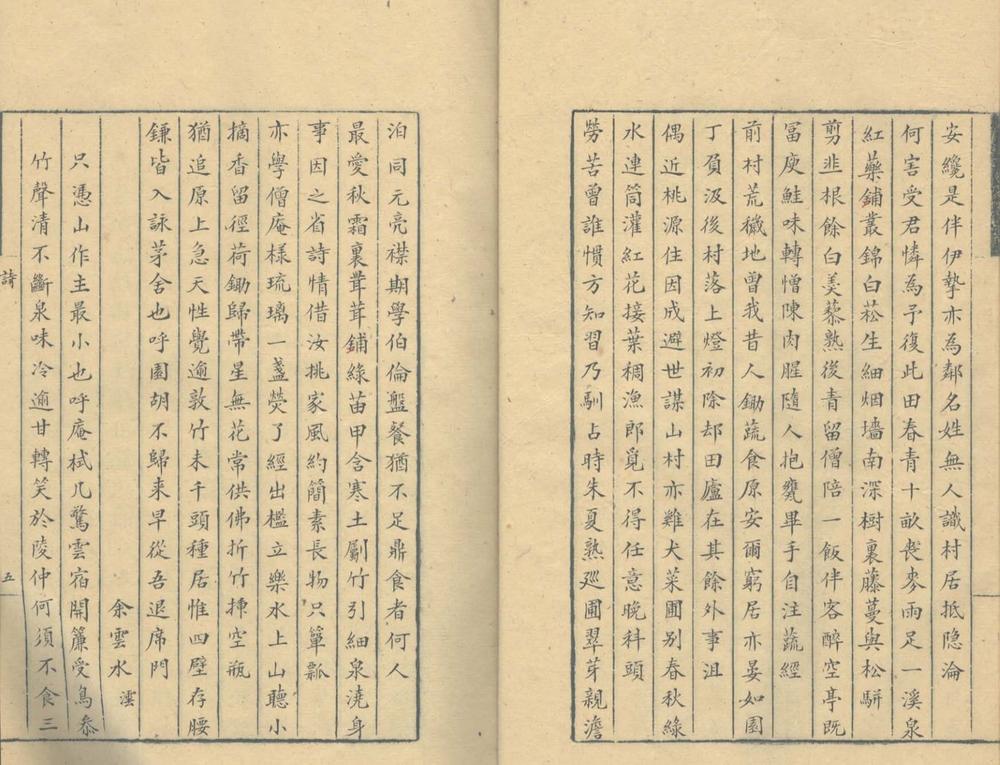 安纔是伴伊摯亦為鄰名姓無人識村居抵隐淪
何害受君憐為予復此田春青十畝喪麥雨足一溪泉
紅藥鋪叢錦白菘生細烟墻南深樹裏藤蔓與松駢
剪韭根餘白羹藜熟後青留僧陪一飯伴客醉空亭既
冨庾鮭味轉憎陳肉腥隨人抱甕畢手自注蔬經
前村荒穢地曾我昔人鋤蔬食原安爾窮居亦晏如園
丁負汲後村落上燈初除却田廬在其餘外事沮
偶近桃源住因成避世謀山村亦雞犬菜圃别春秋綠
水連筒灌紅花接葉稠漁郎覓不得任意晚科頭
勞苦曾誰慣方知習乃馴占時朱夏熟廵圃翠芽親澹
泊同元亮襟期學伯倫盤餐猶不足鼎食者何人
最愛秋霜裏茸茸鋪綠苗甲含寒土劚竹引細泉澆身
事因之省詩情借汝挑家風約簡素長物只簞瓢
亦學僧庵樣琉璃一盞熒了經出檻立樂水上山聽小
摘香留徑荷鋤歸帶星無花常供佛折竹揷空瓶
猶追原上急天性覺逾敦竹未千頭種居惟四壁存腰
鎌皆入詠茅舍也呼園胡不歸来早從吾退席門
余雲水 澐
只憑山作主最小也呼庵栻几驚雲宿開簾受鳥叅
竹聲清不斷泉味冷逾甘轉笑於陵仲何須不食三
詩
五